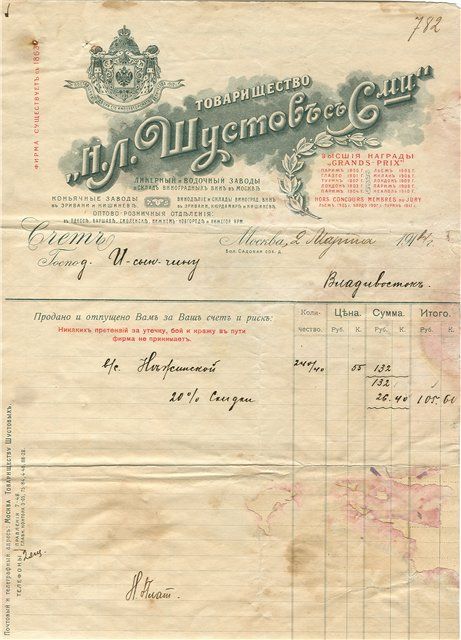 782
ФИРМА СУЩЕСТВУЕТЪ СЪ 1863 Г.
ТОВАРИЩЕСТВО
„Н.Л. Шустовъ съ С-ми"
ЛИКЕРНЫЙ и ВОДОЧНЫЙ ЗАВОДЫ
и СКЛАДЪ ВИНОГРАДНЫХЪ ВИНЪ въ МОСКВѢ.
КОНЬЯЧНЫЕ ЗАВОДЫ
въ ЭРИВАНИ и КИШИНЕВѢ.
ВИНОДѢЛІЕ и СКЛАДЫ ВИНОГРАД. ВИНЪ
въ ЭРИВАНИ, КЮРДАМИРѢ и КИШИНЕВѢ.
ОПТОВО-РОЗНИЧНЫЯ ОТДѢЛЕНІЯ:
въ ОДЕССѢ, ВАРШАВѢ, СМОЛЕНСКѢ, НИЖНЕМЪ НОВГОРОДѢ и НИЖНЕЙ ЯРМ.
ВЫСШІЯ НАГРАДЫ
„GRANDS-PRIX"
ПАРИЖЪ 1900 Г. ЛЬЕЖЪ 1905 Г.
МИЛАНЪ 1906 Г.
HORS CONCOURS MEMBRES DU JURY
Счетъ
Москва, 2 Марта 191
Бол. Садовая соб. д.
Господ.
Владивостокъ.
Продано и отпущено Вамъ за Вашъ счетъ и рискъ:
Никакихъ претензій за утечку, бой и кражу въ пути
фирма не принимаетъ.
Коли-
чество.
Цѣна.
Руб. К.
Сумма.
Руб. К.
Итого.
Руб. К.
в/с. Нѣжинской 240/40 55 132
132
20% Скидки 26.40 105.60
Почтовый и телеграфный адресъ: МОСКВА ТОВАРИЩЕСТВУ ШУСТОВЫХЪ.
ТЕЛЕФОНЫ: